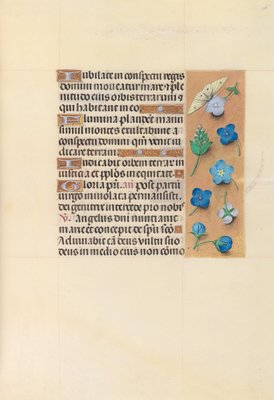 Iubilate in conspectu regis
domini moveatur mare et ple
nitudo eius orbis terrarum et
qui habitant in eo
Flumina plaudent manu
simul montes exultabunt a
conspectu domini quoniam venit iu
dicare terram
Iudicabit orbem terrarum in
iusticia et populos in equitate
Gloria patri. an post partum
virgo inviolata permansisti
dei genitrix intercede pro nobis
V. Angelus domini nunciavit
marie et concepit de spiritu sco
Adiuvabit eam deus vultu suo
deus in medio eius non com̄o